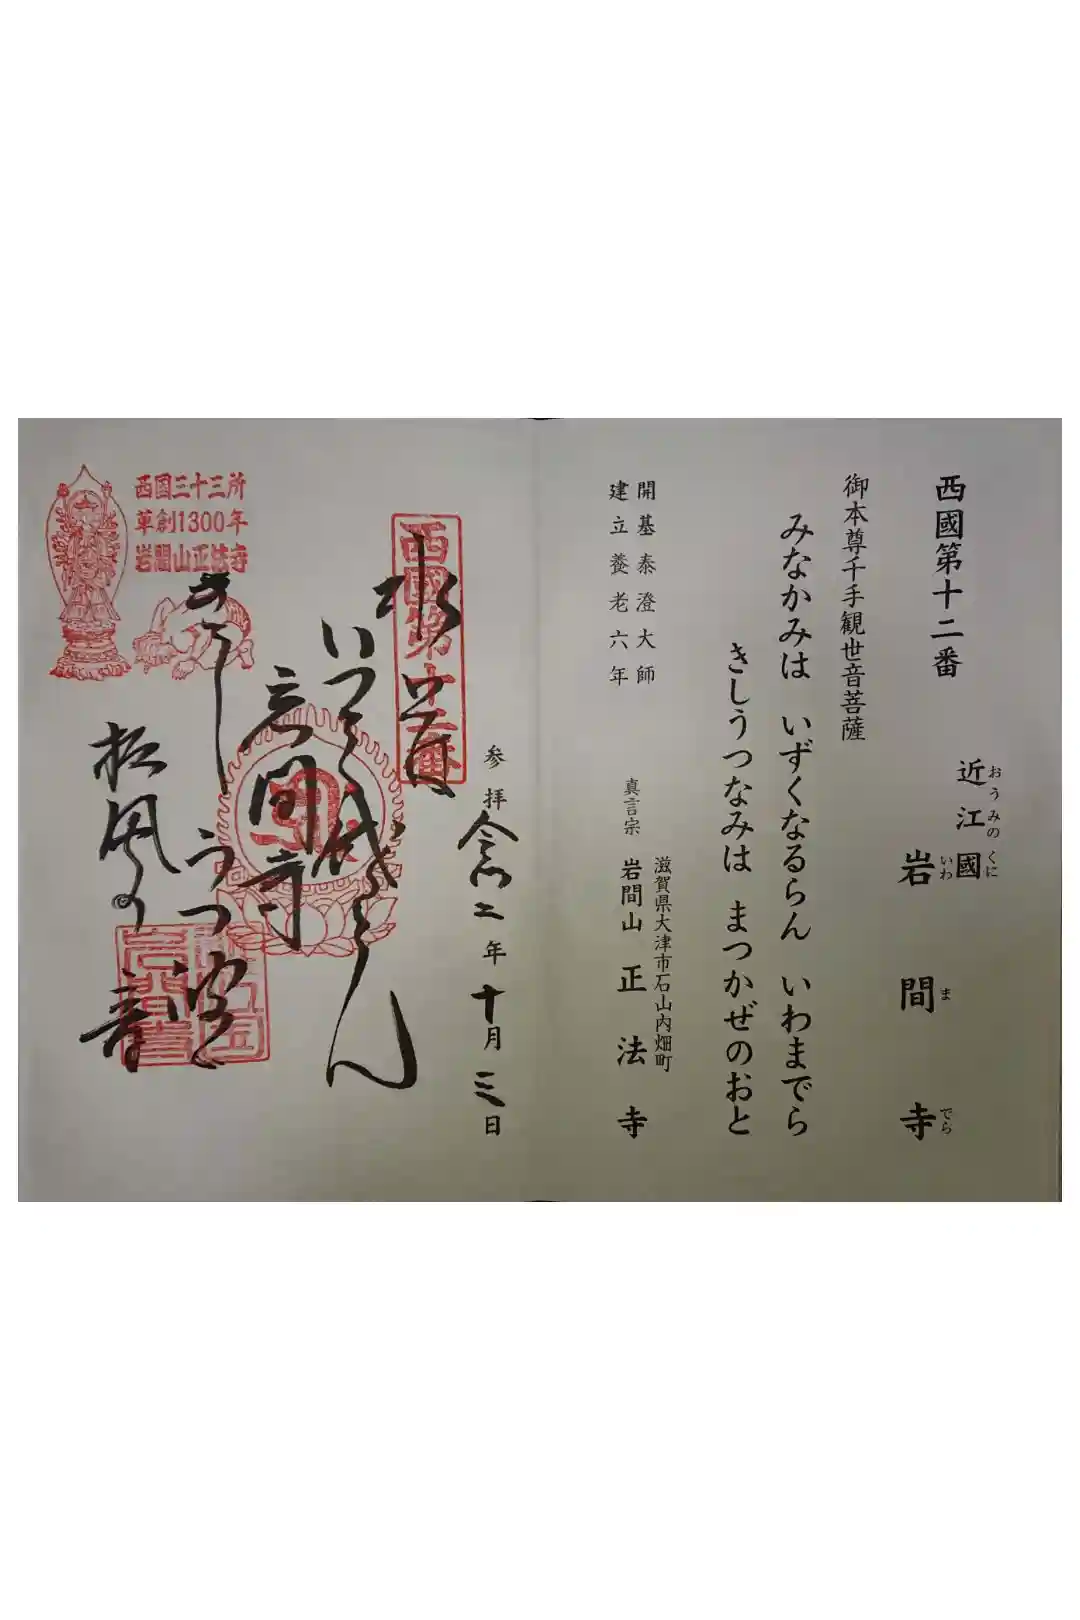 西國第十二番
近江國
おうみのくに
岩間寺
いわまでら
御本尊千手観世音菩薩
みなかみは いずくなるらん いわまでら
きしうつなみは まつかぜのおと
開基泰澄大師
建立養老六年
滋賀県大津市石山内畑町
真言宗 岩間山正法寺
参拝令和二年十月三日
西國第十二番
水上は
いづくなるらん
岩間寺
きし
うつ波は
松風の
音
西国三十三所
草創1300年
岩間山正法寺